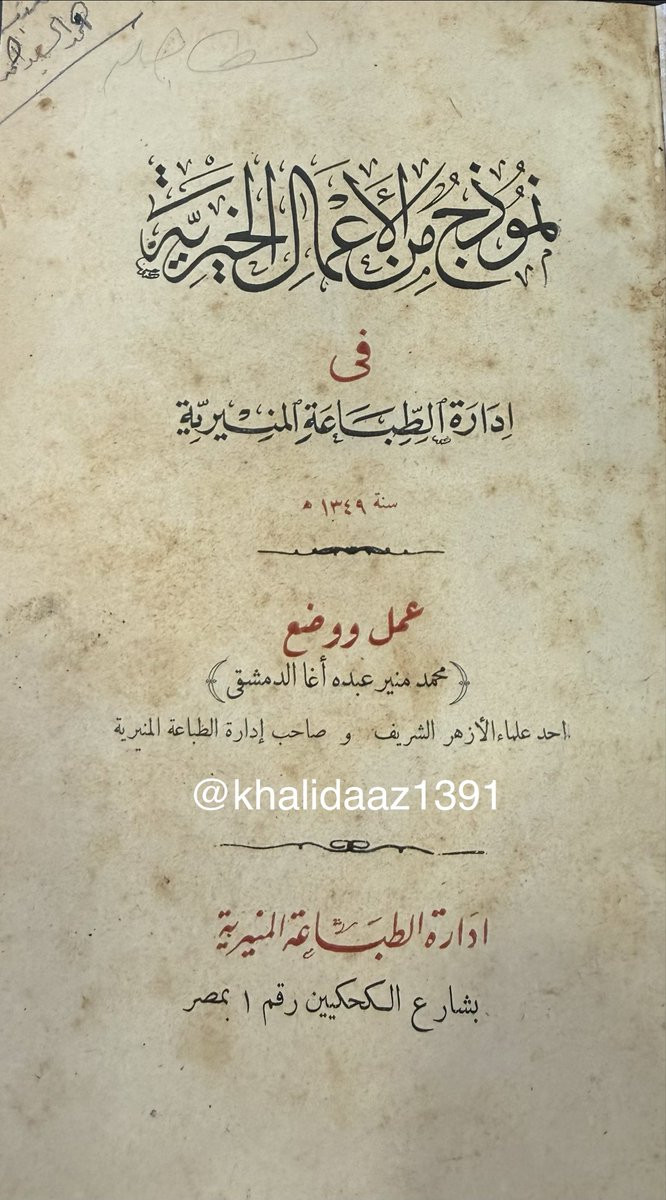 نَمُوذَجٌ مِنَ الأَعْمَالِ الخَيْرِيَّةِ
فى
اِدَارَةِ الطِّبَاعَةِ المُنِيْرِيَّةِ
سنة ١٣٤٩ ه
عمل ووضع
﴿محمد منير عبده أغا الدمشقى﴾
احد علماء الأزهر الشريف و صاحب إدارة الطباعة المنيرية
@khalidaaz1391
ادَارة الطبَاعَة المنيرية
بشارع الكحكيين رقم ١ بمصر